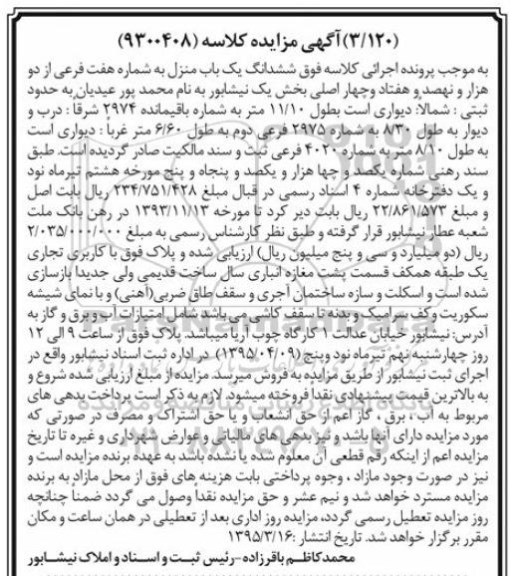 (۳/۱۲۰) آگهی مزایده کلاسه (۹۳۰۰۴۰۸)
به موجب پرونده اجرائی کلاسه فوق ششدانگ یک باب منزل به شماره هفت فرعی از دو
هزار و نهصد و هفتاد وچهار اصلی بخش یک نیشابور به نام محمد پور عیدیان به حدود
ثبتی : شمالا: دیواری است بطول ۱۱/۱۰ متر به شماره باقیمانده ۲۹۷۴ شرقا : درب و
دیوار به طول ۸/۳۰ به شماره ۲۹۷۵ فرعی دوم به طول ۶/۶۰ متر غربا : دیواری است
به طول ۸/۱۰ متر به شماره ۴۰۲۰ فرعی ثبت و سند مالکیت صادر گردیده است. طبق
سند رهنی شماره یکصد و چها هزار و یکصد و پنجاه و پنج مورخه هشتم تیرماه نود
و یک دفترخانه شماره ۴ اسناد رسمی در قبال مبلغ ۲۳۴/۷۵۱/۴۲۸ ریال بابت اصل
و مبلغ ۲۲/۸۶۱/۵۷۳ ریال بابت دیر کرد تا مورخه ۱۳۹۳/۱۱/۱۳ در رهن بانک ملت
شعبه عطار نیشابور قرار گرفته و طبق نظر کارشناس رسمی به مبلغ ۲/۰۳۵/۰۰۰/۰۰۰
ریال (دو میلیارد و سی و پنج میلیون ریال) ارزیابی شده و پلاک فوق با کاربری تجاری
یک طبقه همکف قسمت پشت مغازه انباری سال ساخت قدیمی ولی جدیدا بازسازی
شده است و اسکلت و سازه ساختمان آجری و سقف طاق ضربی(آهنی) و با نمای شیشه
سکوریت وکف سرامیک و بدنه تا سقف کاشی می باشد شامل امتیازات آب و برق و گاز به
آدرس: نیشابور خیابان عدالت ۱ کارگاه چوب آریا میباشد. پلاک فوق از ساعت ۹ الی ۱۲
روز چهارشنبه نهم تیرماه نود وپنج (۱۳۹۵/۰۴/۰۹) در اداره ثبت اسناد نیشابور واقع در
اجرای ثبت نیشابور از طریق مزایده به فروش میرسد. مزایده از مبلغ ارزیابی شده شروع و
به بالاترین قیمت پیشنهادی نقدا فروخته میشود. لازم به ذکر است پرداخت بدهی های
مربوط به آب، برق ، گاز اعم از حق انشعاب و یا حق اشتراک و مصرف در صورتی که
مورد مزایده دارای آنها باشد و نیز بدهی های مالیاتی و عوارض شهرداری و غیره تا تاریخ
مزایده اعم از اینکه رقم قطعی آن معلوم شده یا نشده باشد به عهده برنده مزایده است و
نیز در صورت وجود مازاد ، وجوه پرداختی بابت هزینه های فوق از محل مازاد به برنده
مزایده مسترد خواهد شد و نیم عشر و حق مزایده نقدا وصول می گردد ضمنا چنانچه
روز مزایده تعطیل رسمی گردد، مزایده روز اداری بعد از تعطیلی در همان ساعت و مکان
مقرر برگزار خواهد شد. تاریخ انتشار :۱۳۹۵/۳/۱۶
محمدکاظم باقرزاده -رئیس ثبت و اسناد و املاک نیشابور